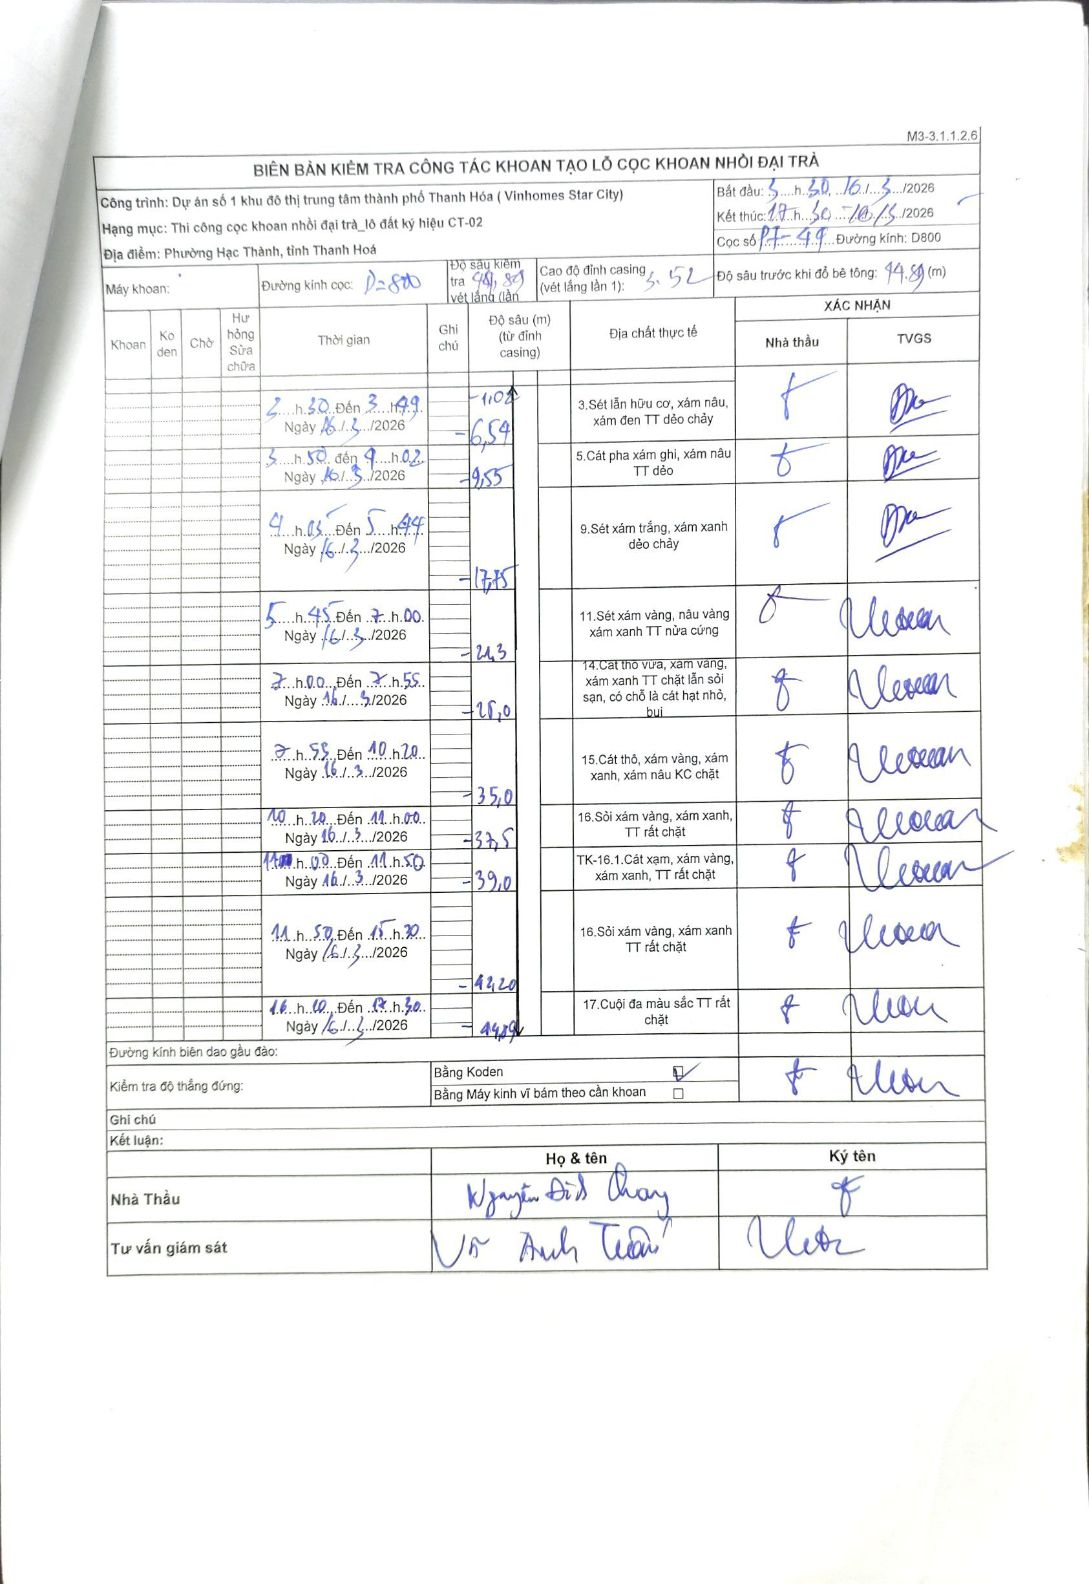 M3-3.1.1.2.6
BIÊN BẢN KIỂM TRA CÔNG TÁC KHOAN TẠO LỖ CỌC KHOAN NHỒI ĐẠI TRÀ
Công trình: Dự án số 1 khu đô thị trung tâm thành phố Thanh Hóa ( Vinhomes Star City)
Hạng mục: Thi công cọc khoan nhồi đại trà_lô đất ký hiệu CT-02
Địa điểm: Phường Hạc Thành, tỉnh Thanh Hoá
Bắt đầu: 3 h 30, 16/ 3 /2026
Kết thúc: 17 h 30 16/3/2026
Cọc số PT-49 Đường kính: D800
Máy khoan:
Đường kính cọc: D=800
Độ sâu kiểm
tra 44,89
vét lắng (lần
Cao độ đỉnh casing
(vét lắng lần 1): 3.52
Độ sâu trước khi đổ bê tông: 44.89 (m)
Khoan
Ko
den
Chờ
Hư
hỏng
Sửa
chữa
Thời gian
Ghi
chú
Độ sâu (m)
(từ đỉnh
casing)
Địa chất thực tế
XÁC NHẬN
Nhà thầu
TVGS
3 h 30 Đến 3 h 49
Ngày 16/ 3 /2026
-1,02
-6,54
3.Sét lẫn hữu cơ, xám nâu,
xám đen TT dẻo chảy
3 h 50 đến 4 h 02
Ngày 16/ 3 /2026
-9,55
5.Cát pha xám ghi, xám nâu
TT dẻo
4 h 03 Đến 5 h 44
Ngày 16/ 3 /2026
-17,75
9.Sét xám trắng, xám xanh
dẻo chảy
5 h 45 Đến 7 h 00
Ngày 16/ 3 /2026
-21,3
11.Sét xám vàng, nâu vàng
xám xanh TT nửa cứng
7 h 00 Đến 7 h 55
Ngày 16/ 3 /2026
-25,0
14.Cát thô vừa, xám vàng,
xám xanh TT chặt lẫn sỏi
sạn, có chỗ là cát hạt nhỏ,
bụi
7 h 55 Đến 10 h 20
Ngày 16/ 3 /2026
-35,0
15.Cát thô, xám vàng, xám
xanh, xám nâu KC chặt
10 h 20 Đến 11 h 00
Ngày 16/ 3 /2026
-37,5
16.Sỏi xám vàng, xám xanh,
TT rất chặt
11 h 00 Đến 11 h 50
Ngày 16/ 3 /2026
-39,0
TK-16.1.Cát xạm, xám vàng,
xám xanh, TT rất chặt
11 h 50 Đến 15 h 30
Ngày 16/ 3 /2026
-42,20
16.Sỏi xám vàng, xám xanh
TT rất chặt
16 h 10 Đến 17 h 30
Ngày 16/ 3 /2026
-44,89
17.Cuội đa màu sắc TT rất
chặt
Đường kính biên dao gầu đào:
Kiểm tra độ thẳng đứng:
Bằng Koden
Bằng Máy kinh vĩ bám theo cần khoan
Ghi chú
Kết luận:
Họ & tên
Ký tên
Nhà Thầu
Nguyễn Đình
Tư vấn giám sát
Võ Anh Tuấn